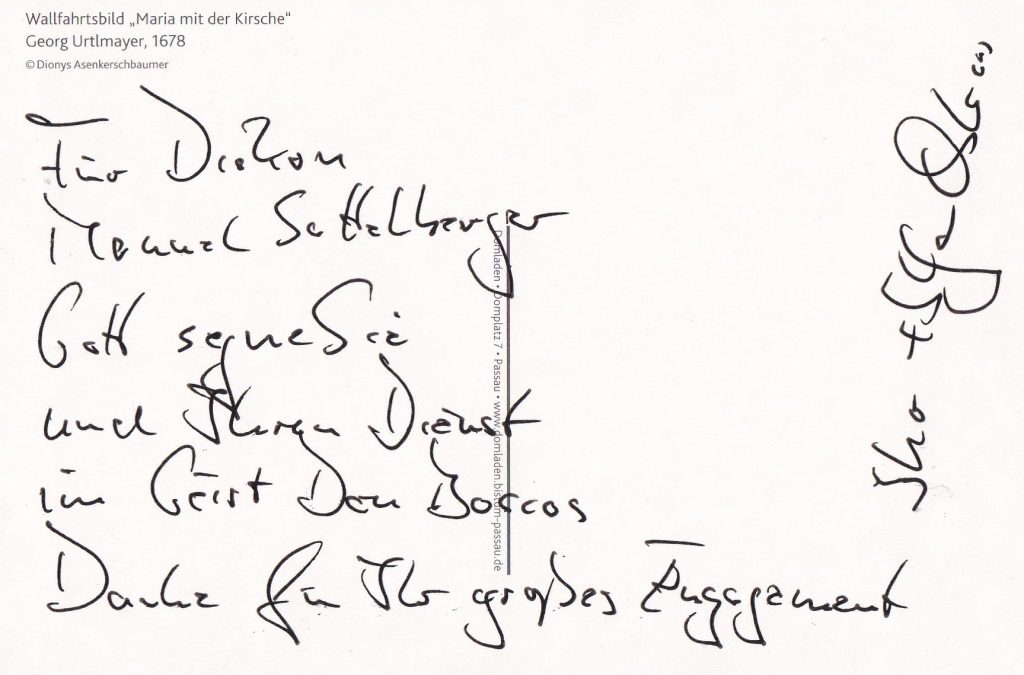 Wallfahrtsbild „Maria mit der Kirsche“
Georg Urtlmayer, 1678
© Dionys Asenkerschbaumer
Für Diakon
Manuel Sattelberger
Gott segne Sie
und Ihren Dienst
im Geist Don Boscos
Danke für Ihr großes Engagement
Domladen • Domplatz 7 • Passau • www.domladen.bistum-passau.de
Ihr +